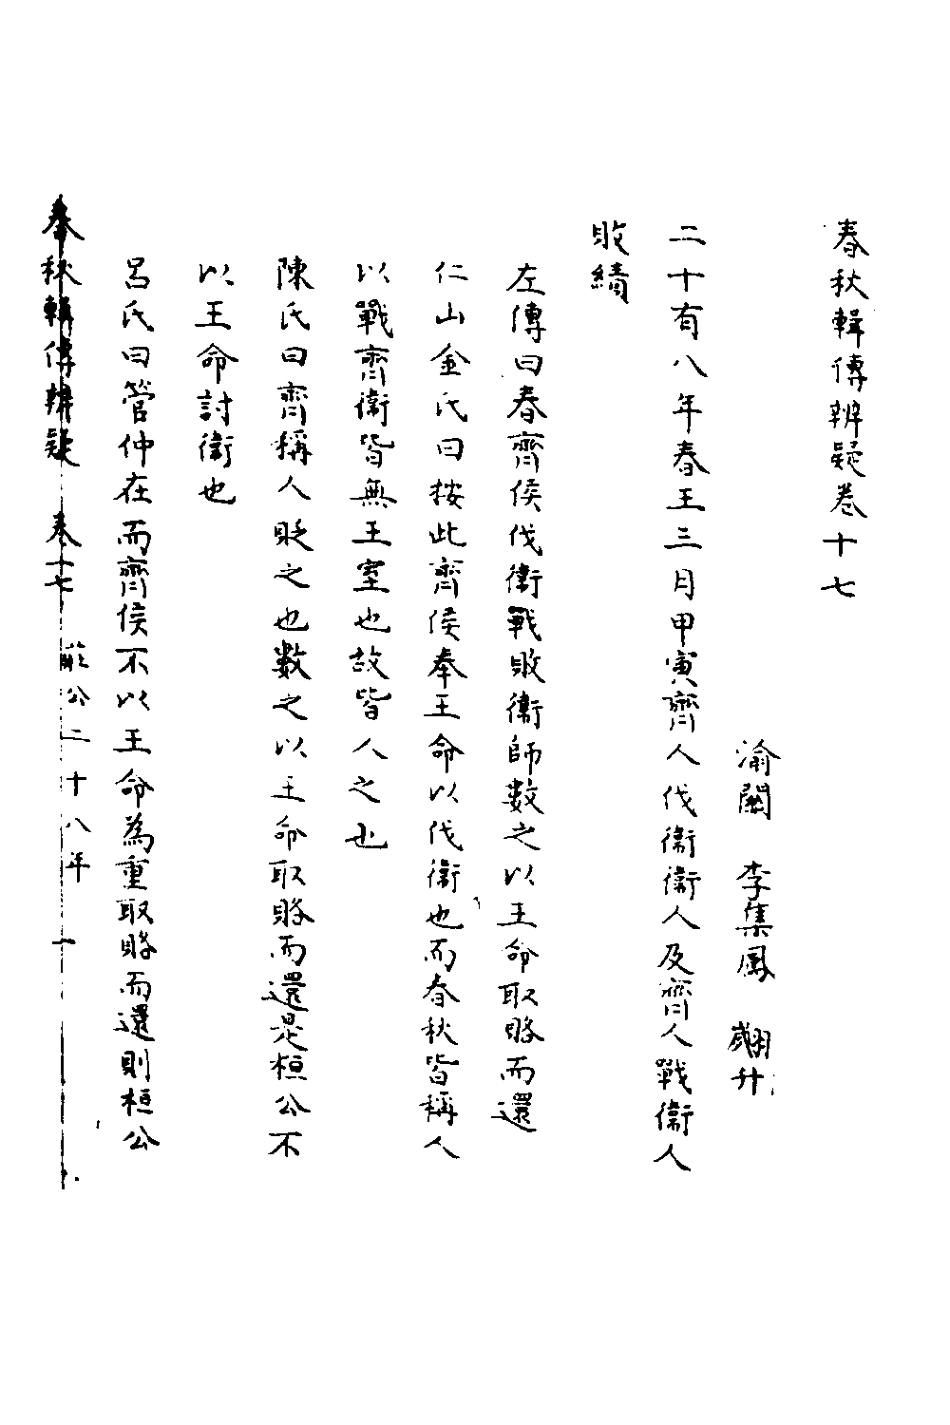 春秋輯傳辨疑卷十七
渝闕 李集鳳 翽升
二十有八年春王三月甲寅齊人伐衞衞人及齊人戰衞人
敗績
左傳曰春齊侯伐衞戰敗衞師數之以王命取賂而還
仁山金氏曰按此齊侯奉王命以伐衞也而春秋皆稱人
以戰齊衞皆無王室也故皆人之也
陳氏曰齊稱人貶之也數之以王命取賂而還是桓公不
以王命討衞也
呂氏曰管仲在而齊侯不以王命為重取賂而還則桓公
春秋輯傳辨疑 卷十七 莊公二十八年 一